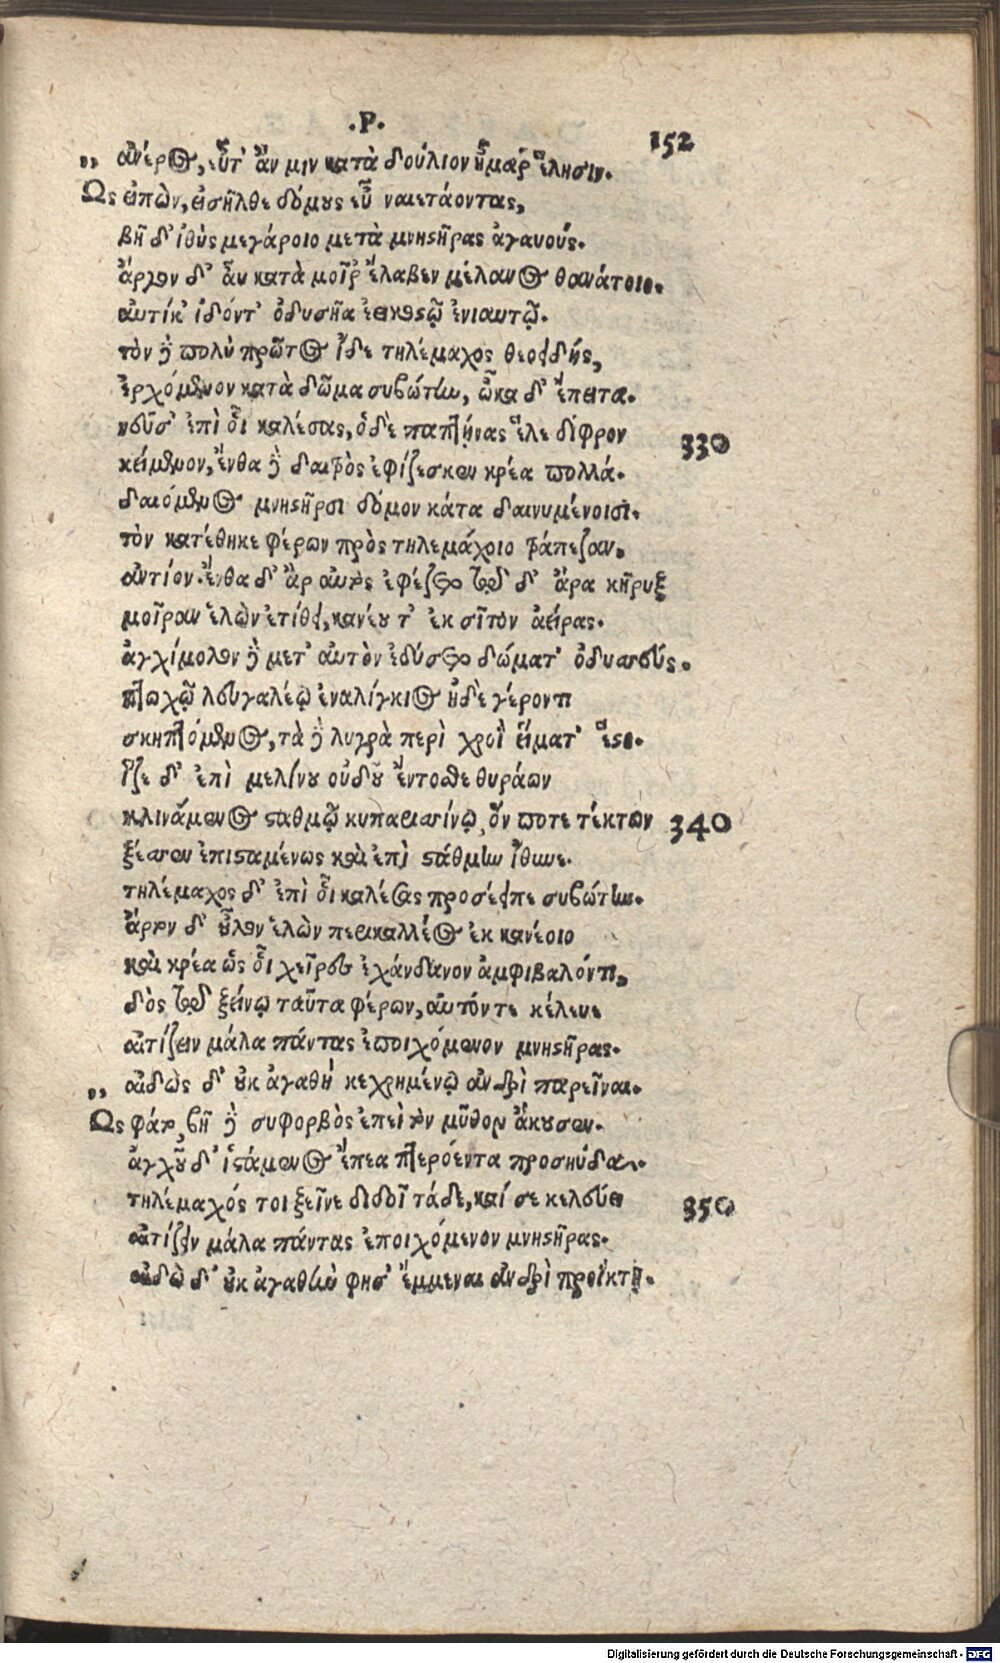 .Ρ.
152
„ ἀνέρος, εὖτ' ἄν μιν κατὰ δούλιον ἦμαρ ἕλησιν.
Ως εἰπὼν, εἰσῆλθε δόμους εὖ ναιετάοντας,
βῆ δ' ἰθὺς μεγάροιο μετὰ μνηστῆρας ἀγαυούς.
ἄργον δ' ἂυ κατὰ μοῖρ' ἔλαβεν μέλανος θανάτοιο.
αὐτίκ' ἰδόντ' ὀδυσῆα ἐεικοστῷ ἐνιαυτῷ.
τὸν δὲ πολὺ πρῶτος ἴδε τηλέμαχος θεοειδής,
ἐρχόμενον κατὰ δῶμα συβώτην, ὦκα δ' ἔπειτα.
νεῦσ' ἐπὶ οἷ καλέσας, ὁ δὲ παπτήνας ἕλε δίφρον
330
κείμενον, ἔνθα δὲ δαιτρὸς ἐφίζεσκεν κρέα πολλά.
δαιόμενος μνηστῆρσι δόμον κάτα δαινυμένοισι.
τὸν κατέθηκε φέρων πρὸς τηλεμάχοιο τράπεζαν.
ἀντίον. ἔνθα δ' ἂρ αὐτὸς ἐφέζετο τῷ δ' ἄρα κῆρυξ
μοῖραν ἑλὼν ἐτίθει, κανέου τ' ἐκ σῖτον ἀείρας.
ἀγχίμολον δὲ μετ' αὐτὸν ἐδύσετο δώματ' ὀδυσσεύς.
πτωχῷ λευγαλέῳ ἐναλίγκιος ἠδὲ γέροντι
σκηπτόμενος, τὰ δὲ λυγρὰ περὶ χροῒ εἵματ' ἕστο.
ἷζε δ' ἐπὶ μελίνου οὐδοῦ ἔντοσθε θυράων
κλινάμενος σταθμῷ κυπαρισσίνῳ, ὅν ποτε τέκτων
340
ξέσσεν ἐπισταμένως καὶ ἐπὶ στάθμην ἴθυνε.
τηλέμαχος δ' ἐπὶ οἷ καλέσας προσέειπε συβώτην.
ἄρτον δ' οὖλον ἑλὼν περικαλλέος ἐκ κανέοιο
καὶ κρέα ὥς οἷ χεῖρες ἐχάνδανον ἀμφιβαλόντι,
δὸς τῷ ξείνῳ ταῦτα φέρων, αὐτόν τε κέλευε
αἰτίζειν μάλα πάντας ἐποιχόμενον μνηστῆρας.
„ αἰδὼς δ' οὐκ ἀγαθή κεχρημένῳ ἀνδρὶ παρεῖναι.
Ως φάτο, βῆ δὲ συφορβὸς ἐπεὶ τὸν μῦθον ἄκουσεν.
ἀγχοῦ δ' ἱστάμενος ἔπεα πτερόεντα προσηύδα.
τηλέμαχός τοι ξεῖνε διδοῖ τάδε, καί σε κελεύει
350
αἰτίζειν μάλα πάντας ἐποιχόμενον μνηστῆρας.
αἰδῶ δ' οὐκ ἀγαθὴν φησ' ἔμμεναι ἀνδρὶ προΐκτῃ.
Digitalisierung gefördert durch die Deutsche Forschungsgemeinschaft - DFG